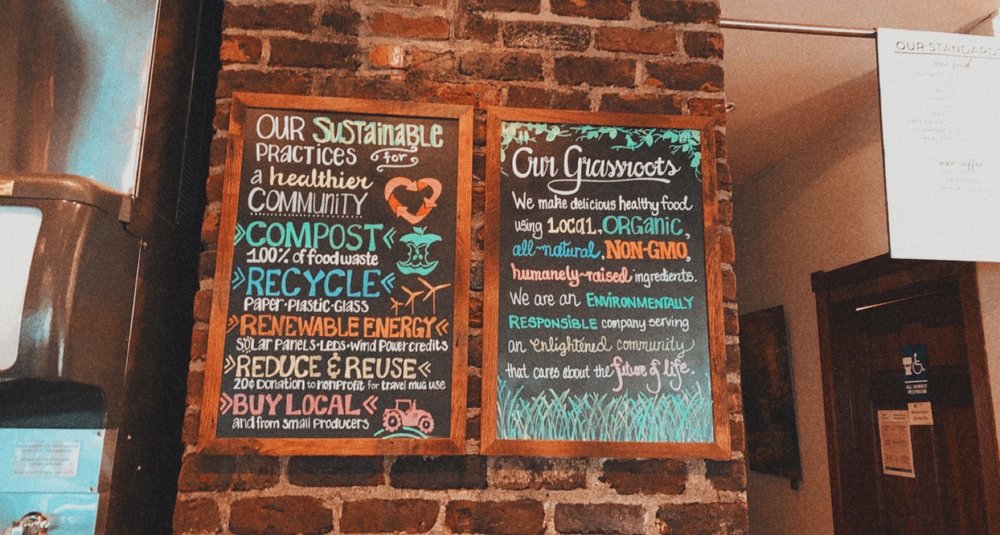 OUR SUSTAINABLE
PRACTICES for
a healthier
COMMUNITY
COMPOST
100% of food waste
RECYCLE
PAPER · PLASTIC · GLASS
RENEWABLE ENERGY
SOLAR PANELS · LEDS · WIND POWER CREDITS
REDUCE & REUSE
20¢ DONATION to NONPROFIT for travel mug use
BUY LOCAL
and from small producers
Our Grassroots
We make delicious healthy food
using LOCAL, ORGANIC,
all-natural, NON-GMO,
humanely-raised ingredients.
We are an ENVIRONMENTALLY
RESPONSIBLE company serving
an enlightened community
that cares about the future of life.
OUR STANDARD
our food
our coffee
ALL GENDER
RESTROOM